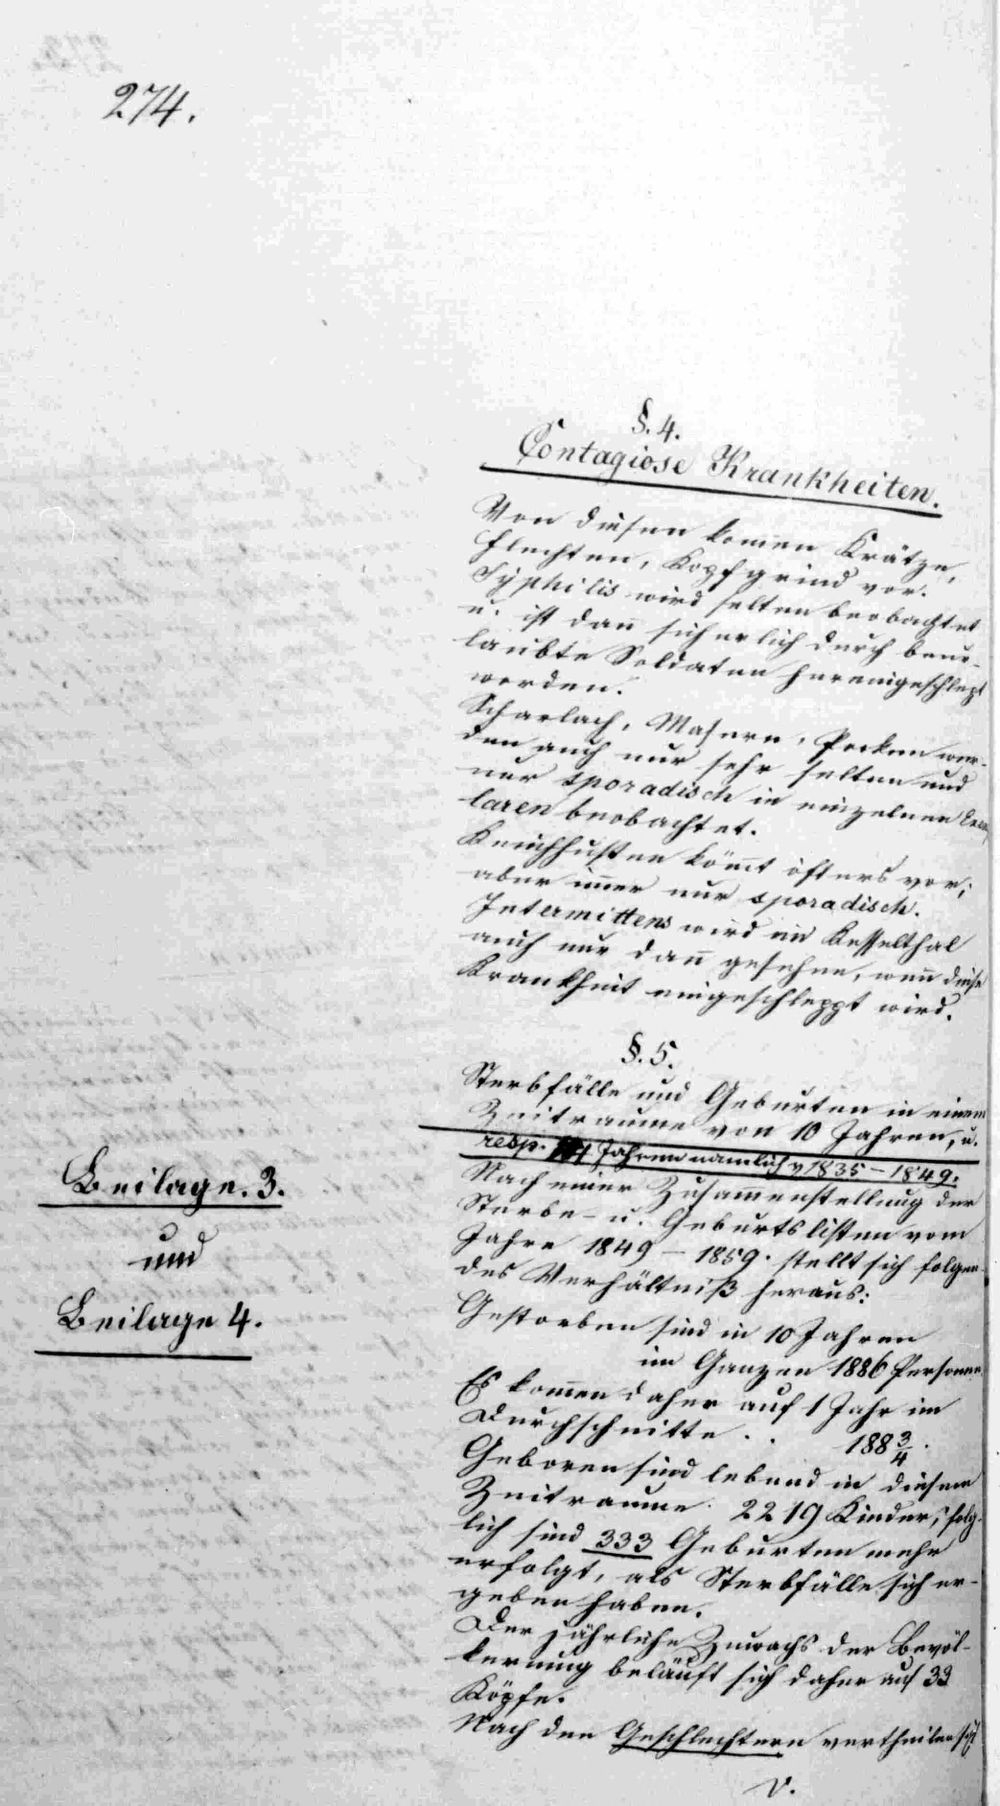 274.
§. 4.
Contagiose Krankheiten.
Von diesen kom̄en Krätze,
Flechten, Kopfgrind vor.
Syphilis wird selten beobachtet
u. ist dan̄ sicherlich durch beur-
laubte Soldaten hereingeschlept
worden.
Scharlach, Masern, Pocken wer-
den auch nur sehr selten und
nur sporadisch in einzelnen Exem
laren beobachtet.
Keuchhusten köm̄t öfters vor;
aber im̄er nur sporadisch.
Intermittens wird im Kesselthal
auch nur dan̄ gesehen, wen̄ diese
Krankheit eingeschleppt wird.
§. 5.
Sterbfälle und Geburten in einem
Zeitraume von 10 Jahren, u.
resp. 14 Jahren nämlich v 1835 - 1849.
Beilage. 3.
und
Beilage 4.
Nach einer Zusam̄enstellung der
Sterbe- u. Geburtslisten vom
Jahre 1849 - 1859. stellt sich folgen-
des Verhältniß heraus:
Gestorben sind in 10 Jahren
im Ganzen 1886 Personen.
Es kom̄en daher auf 1 Jahr im
Durchschnitte . . 188 3/4.
Geboren sind lebend in diesem
Zeitraume 2219 Kinder; folg-
lich sind 333 Geburten mehr
erfolgt, als Sterbfälle sich er-
geben haben.
Der jährliche Zuwachs der Bevöl-
kerung beläuft sich daher auf 33
Köpfe.
Nach den Geschlechtern vertheilen sich